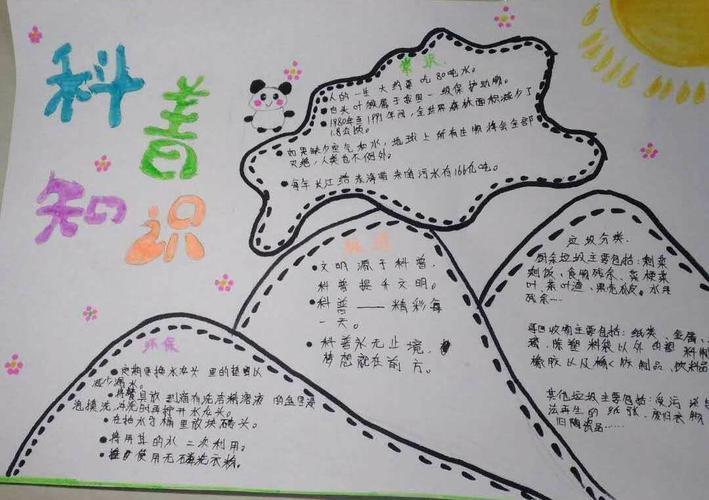 科普
知识
常识
人的一生大约要吃80吨水。
白头叶猴属于我国一级保护动物。
1980年至1991年间,全世界森林面积减少了
1.8公顷。
如果缺少空气和水,地球上所有生物将会全部
灭绝,人类也不例外。
每年长江给东海带来的污水有166亿吨。
文明源于科普,
科普提升文明。
科普——精彩每
一天。
科普永无止境,
梦想就在前方。
环保
定期更换水龙头里的
减少漏水。
将餐具放到滴有洗洁精溶液的
泡摸洗,再拧开水龙头。
在抽水马桶里放块砖头。
将用其的水二次利用。
使用无磷洗衣粉。
垃圾分类
厨余垃圾主要包括:剩菜
剩饭、食物残余、菜梗菜
叶、茶叶渣、果壳瓜皮。水果
残余……
可回收物主要包括:纸类、金属、
除塑料袋以外的塑料制
橡胶以及橡胶制品、饮料品
其他垃圾主要包括:受污
法再生的纸张、废旧衣物
旧陶瓷品……